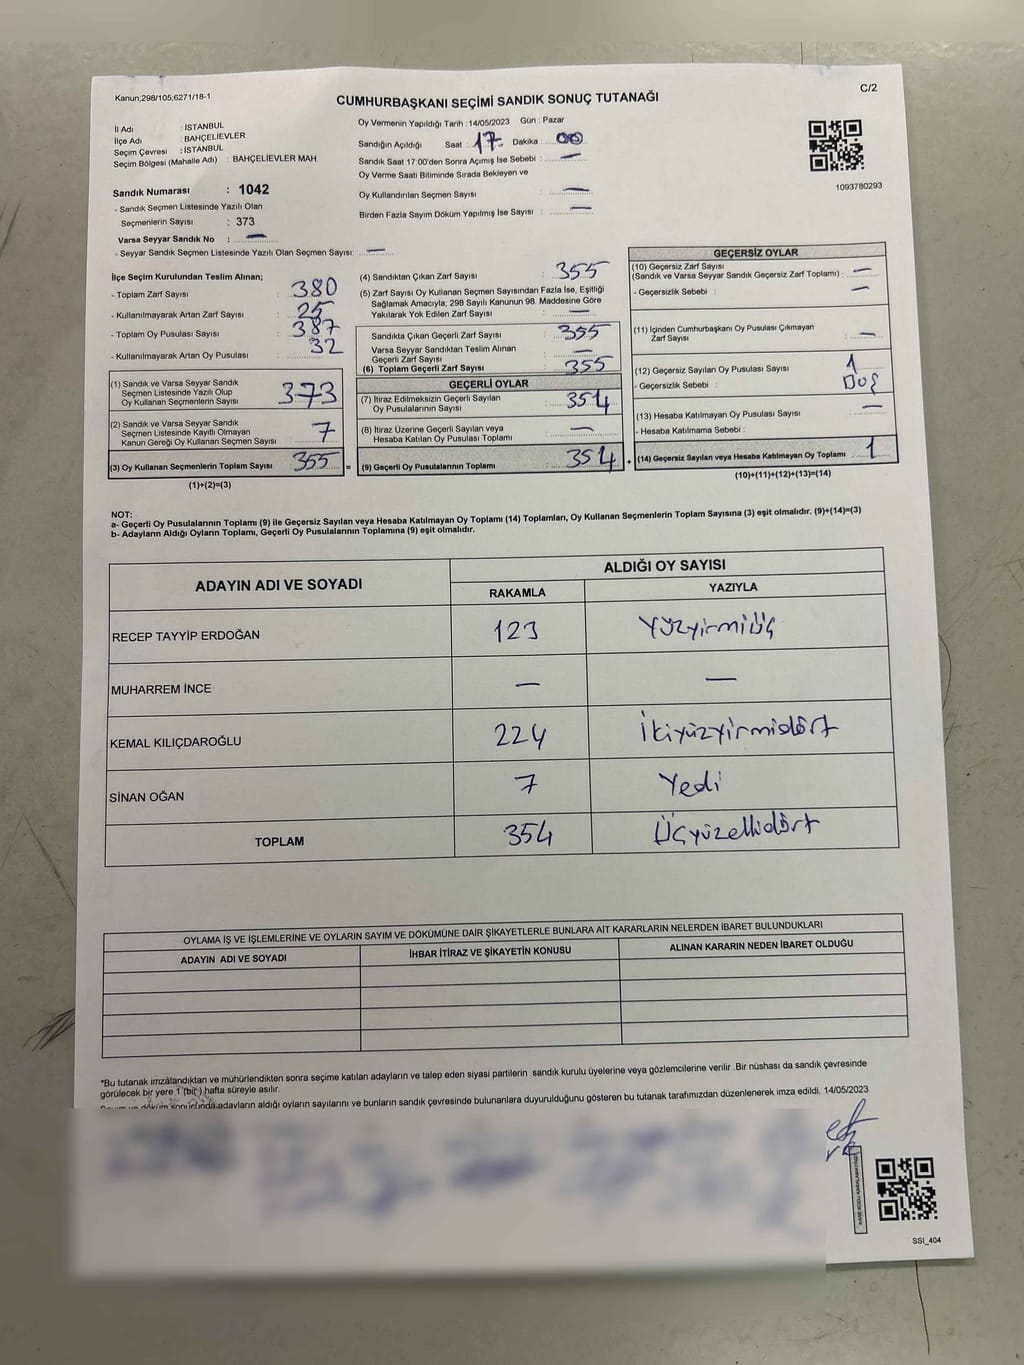 Kanun;298/105;6271/18-1
C/2
CUMHURBAŞKANI SEÇİMİ SANDIK SONUÇ TUTANAĞI
İl Adı : İSTANBUL
İlçe Adı : BAHÇELİEVLER
Seçim Çevresi : İSTANBUL
Seçim Bölgesi (Mahalle Adı) : BAHÇELİEVLER MAH.
Sandık Numarası : 1042
- Sandık Seçmen Listesinde Yazılı Olan
Seçmenlerin Sayısı : 373
Varsa Seyyar Sandık No : —
- Seyyar Sandık Seçmen Listesinde Yazılı Olan Seçmen Sayısı: —
Oy Vermenin Yapıldığı Tarih : 14/05/2023 Gün : Pazar
Sandığın Açıldığı Saat : 17 Dakika : 00
Sandık Saat 17:00'den Sonra Açmış İse Sebebi : —
Oy Verme Saati Bitiminde Sırada Bekleyen ve
Oy Kullandırılan Seçmen Sayısı —
Birden Fazla Sayım Döküm Yapılmış İse Sayısı : —
1093780293
İlçe Seçim Kurulundan Teslim Alınan;
- Toplam Zarf Sayısı : 380
- Kullanılmayarak Artan Zarf Sayısı : 25
- Toplam Oy Pusulası Sayısı : 387
- Kullanılmayarak Artan Oy Pusulası : 32
(1) Sandık ve Varsa Seyyar Sandık
Seçmen Listesinde Yazılı Olup
Oy Kullanan Seçmenlerin Sayısı : 373
(2) Sandık ve Varsa Seyyar Sandık
Seçmen Listesinde Kayıtlı Olmayan
Kanun Gereği Oy Kullanan Seçmen Sayısı : 7
(3) Oy Kullanan Seçmenlerin Toplam Sayısı : 355 =
(1)+(2)=(3)
(4) Sandıktan Çıkan Zarf Sayısı : 355
(5) Zarf Sayısı Oy Kullanan Seçmen Sayısından Fazla İse, Eşitliği
Sağlamak Amacıyla; 298 Sayılı Kanunun 98. Maddesine Göre
Yakılarak Yok Edilen Zarf Sayısı : —
Sandıkta Çıkan Geçerli Zarf Sayısı : 355
Varsa Seyyar Sandıktan Teslim Alınan
Geçerli Zarf Sayısı : —
(6) Toplam Geçerli Zarf Sayısı : 355
GEÇERLİ OYLAR
(7) İtiraz Edilmeksizin Geçerli Sayılan
Oy Pusulalarının Sayısı : 354
(8) İtiraz Üzerine Geçerli Sayılan veya
Hesaba Katılan Oy Pusulası Toplamı : —
(9) Geçerli Oy Pusulalarının Toplamı : 354 +
GEÇERSİZ OYLAR
(10) Geçersiz Zarf Sayısı
(Sandık ve Varsa Seyyar Sandık Geçersiz Zarf Toplamı) : —
- Geçersizlik Sebebi : —
(11) İçinden Cumhurbaşkanı Oy Pusulası Çıkmayan
Zarf Sayısı : —
(12) Geçersiz Sayılan Oy Pusulası Sayısı : 1
- Geçersizlik Sebebi : Boş
(13) Hesaba Katılmayan Oy Pusulası Sayısı : —
- Hesaba Katılmama Sebebi :
(14) Geçersiz Sayılan veya Hesaba Katılmayan Oy Toplamı : 1
(10)+(11)+(12)+(13)=(14)
NOT:
a- Geçerli Oy Pusulalarının Toplamı (9) ile Geçersiz Sayılan veya Hesaba Katılmayan Oy Toplamı (14) Toplamları, Oy Kullanan Seçmenlerin Toplam Sayısına (3) eşit olmalıdır. (9)+(14)=(3)
b- Adayların Aldığı Oyların Toplamı, Geçerli Oy Pusulalarının Toplamına (9) eşit olmalıdır.
ADAYIN ADI VE SOYADI ALDIĞI OY SAYISI
RAKAMLA YAZIYLA
RECEP TAYYİP ERDOĞAN 123 Yüzyirmiüç
MUHARREM İNCE — —
KEMAL KILIÇDAROĞLU 224 İkiyüzyirmidört
SİNAN OĞAN 7 Yedi
TOPLAM 354 Üçyüzellidört
OYLAMA İŞ VE İŞLEMLERİNE VE OYLARIN SAYIM VE DÖKÜMÜNE DAİR ŞİKAYETLERLE BUNLARA AİT KARARLARIN NELERDEN İBARET BULUNDUKLARI
ADAYIN ADI VE SOYADI İHBAR İTİRAZ VE ŞİKAYETİN KONUSU ALINAN KARARIN NEDEN İBARET OLDUĞU
*Bu tutanak imzalandıktan ve mühürlendikten sonra seçime katılan adayların ve talep eden siyasi partilerin sandık kurulu üyelerine veya gözlemcilerine verilir .Bir nüshası da sandık çevresinde
görülecek bir yere 1 (bir ) hafta süreyle asılır.
Sayım ve döküm sonucunda adayların aldığı oyların sayılarını ve bunların sandık çevresinde bulunanlara duyurulduğunu gösteren bu tutanak tarafımızdan düzenlenerek imza edildi. 14/05/2023
SSI_404